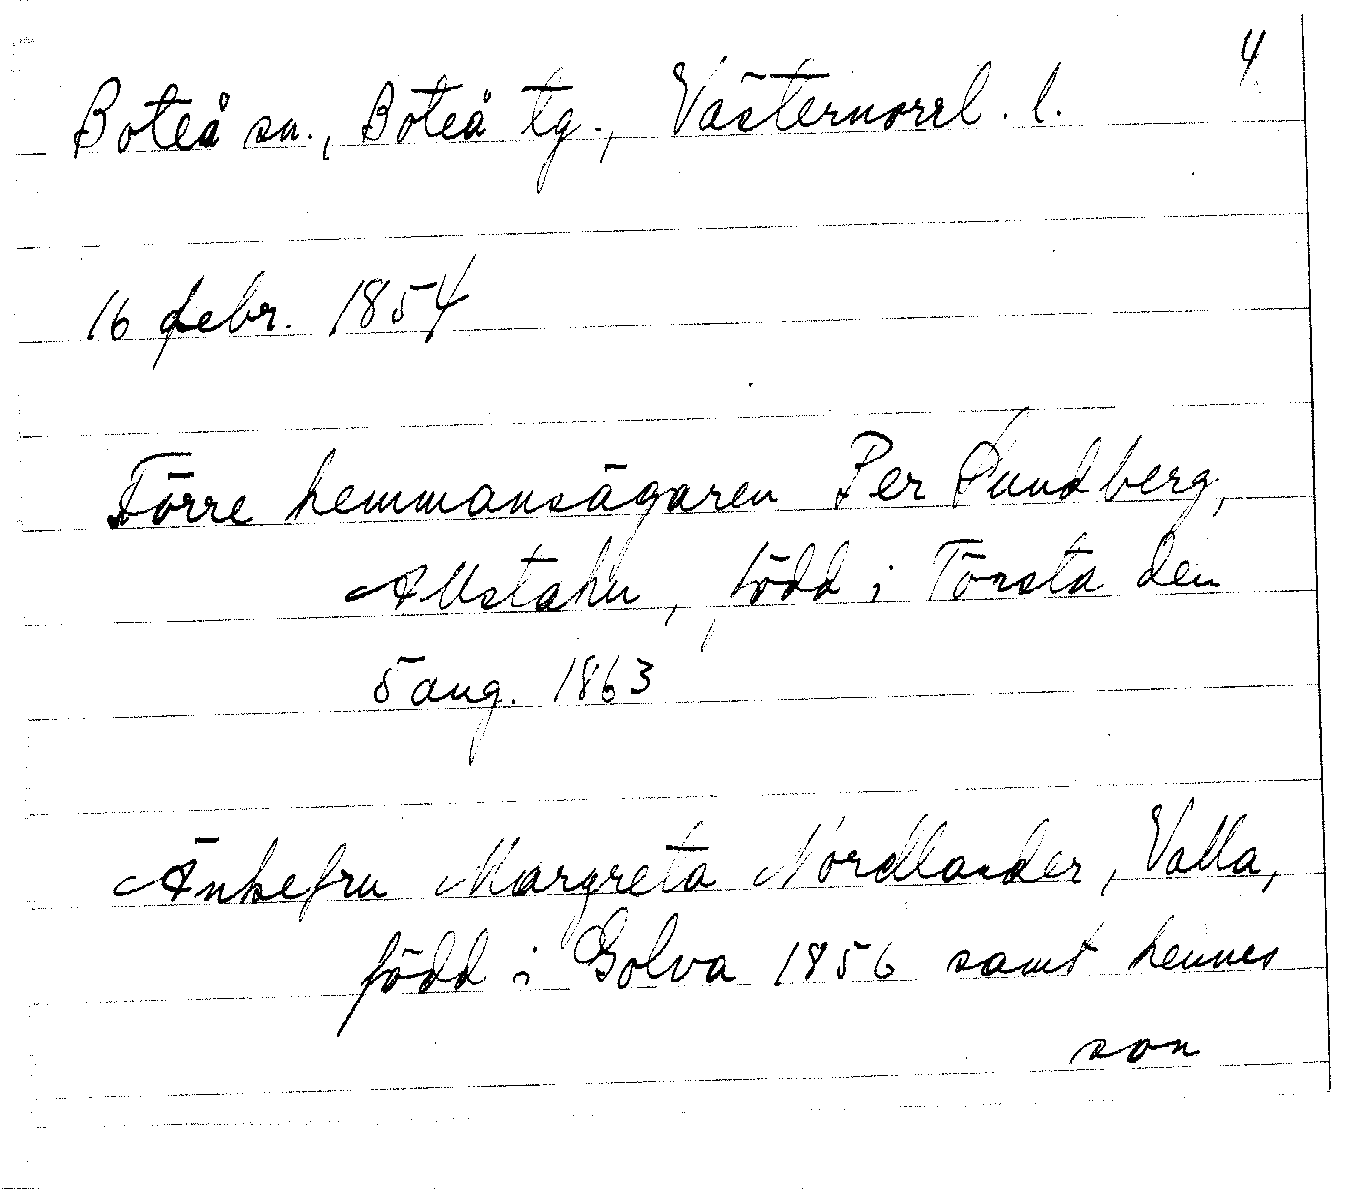 4
Boteå sn., Boteå tg., Västernorrl. l.
16 febr. 1854
Förre hemmansägaren Per Sundberg,
Allstahn, född i Törsta den
5 aug. 1863
Änkefru Margreta Nordlander, Valla,
född i Golva 1856 samt hennes
son